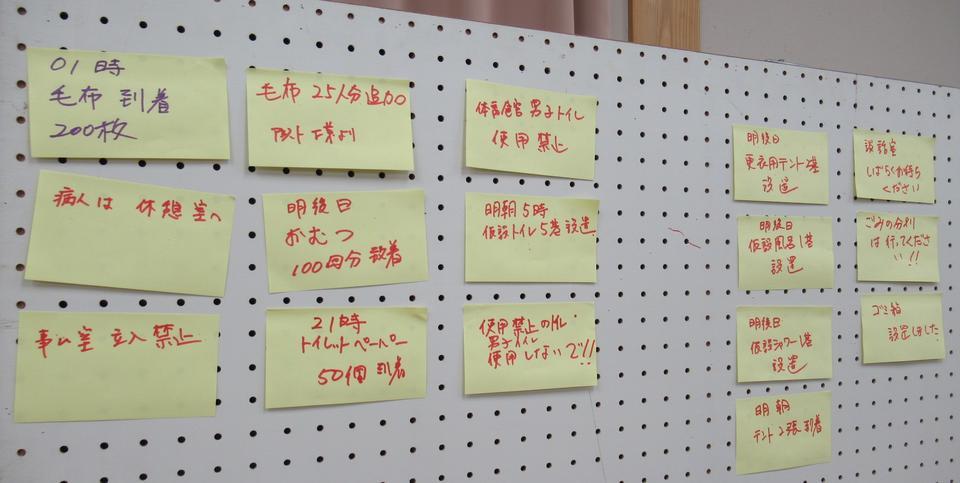 01時
毛布 到着
200枚
病人は 休憩室へ
事ム室 立入禁止
毛布 25人分追加
明後日
おむつ
100回分 到着
21時
トイレットペーパー
50個 到着
体育館 男子トイレ
使用禁止
明朝5時
仮設トイレ5基設置
使用禁止のトイレ・
男子トイレ
使用しないで!!
明後日
更衣用テント2基
設置
明後日
仮設風呂1基
設置
明後日
仮設シャワー1基
設置
明朝
テント2張到着
談話室
しばらくお待ち
ください
ごみの分別
は行ってくださ
い!!
ゴミ箱
設置しました